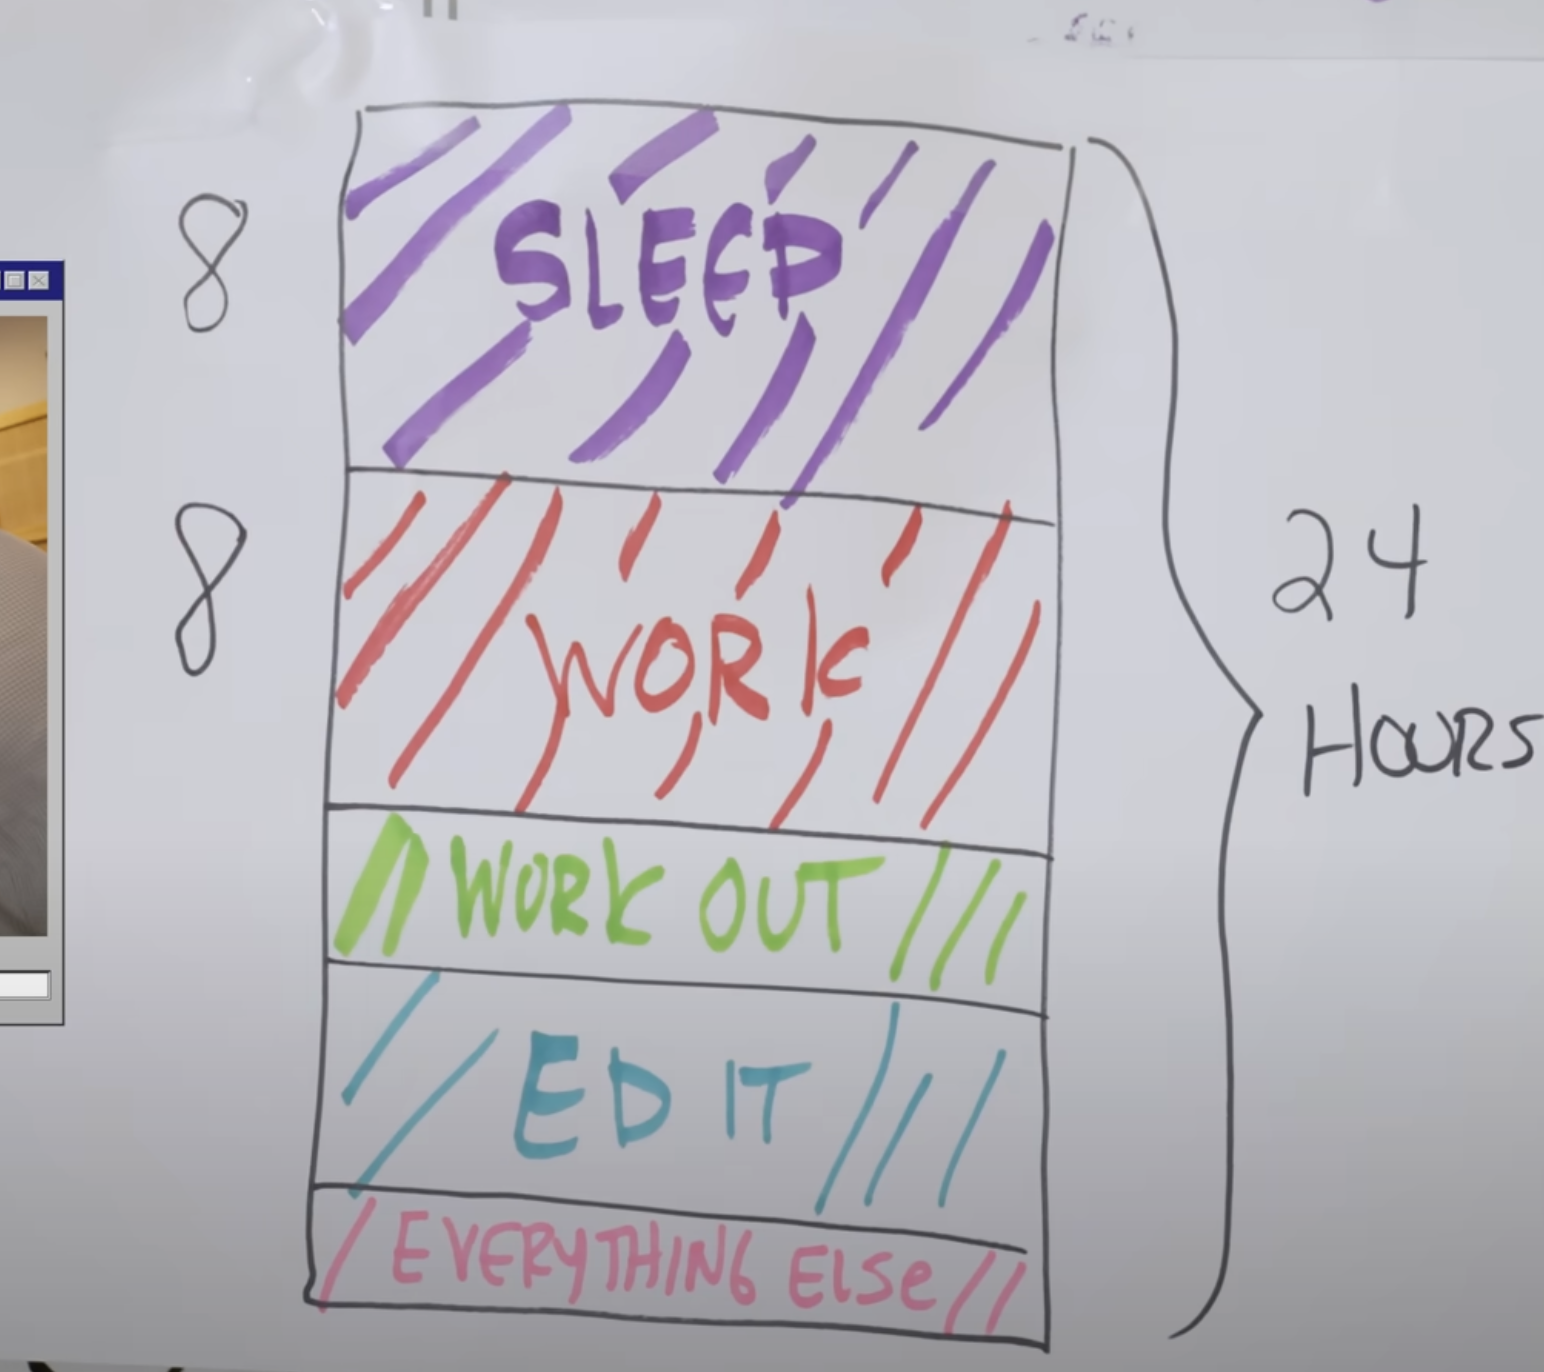 8
SLEEP
8
WORK
24
HOURS
WORK OUT
EDIT
EVERYTHING ELSE